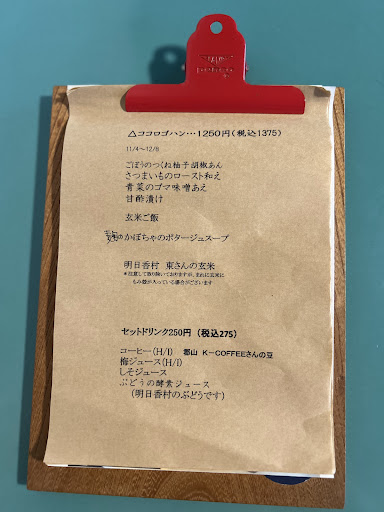 △ココロゴハン…1250円(税込1375)
11/4～12/8
ごぼうのつくね柚子胡椒あん
さつまいものロースト和え
青菜のゴマ味噌あえ
甘酢漬け
玄米ご飯
かぼちゃのポタージュスープ
明日香村 東さんの玄米
※注意して取り除いておりますが、まれに玄米に
もみ殻が入っている場合がございます
セットドリンク250円 (税込275)
コーヒー(H/I) 郡山 K－COFFEEさんの豆
梅ジュース(H/I)
しそジュース
ぶどうの酵素ジュース
(明日香村のぶどうです)